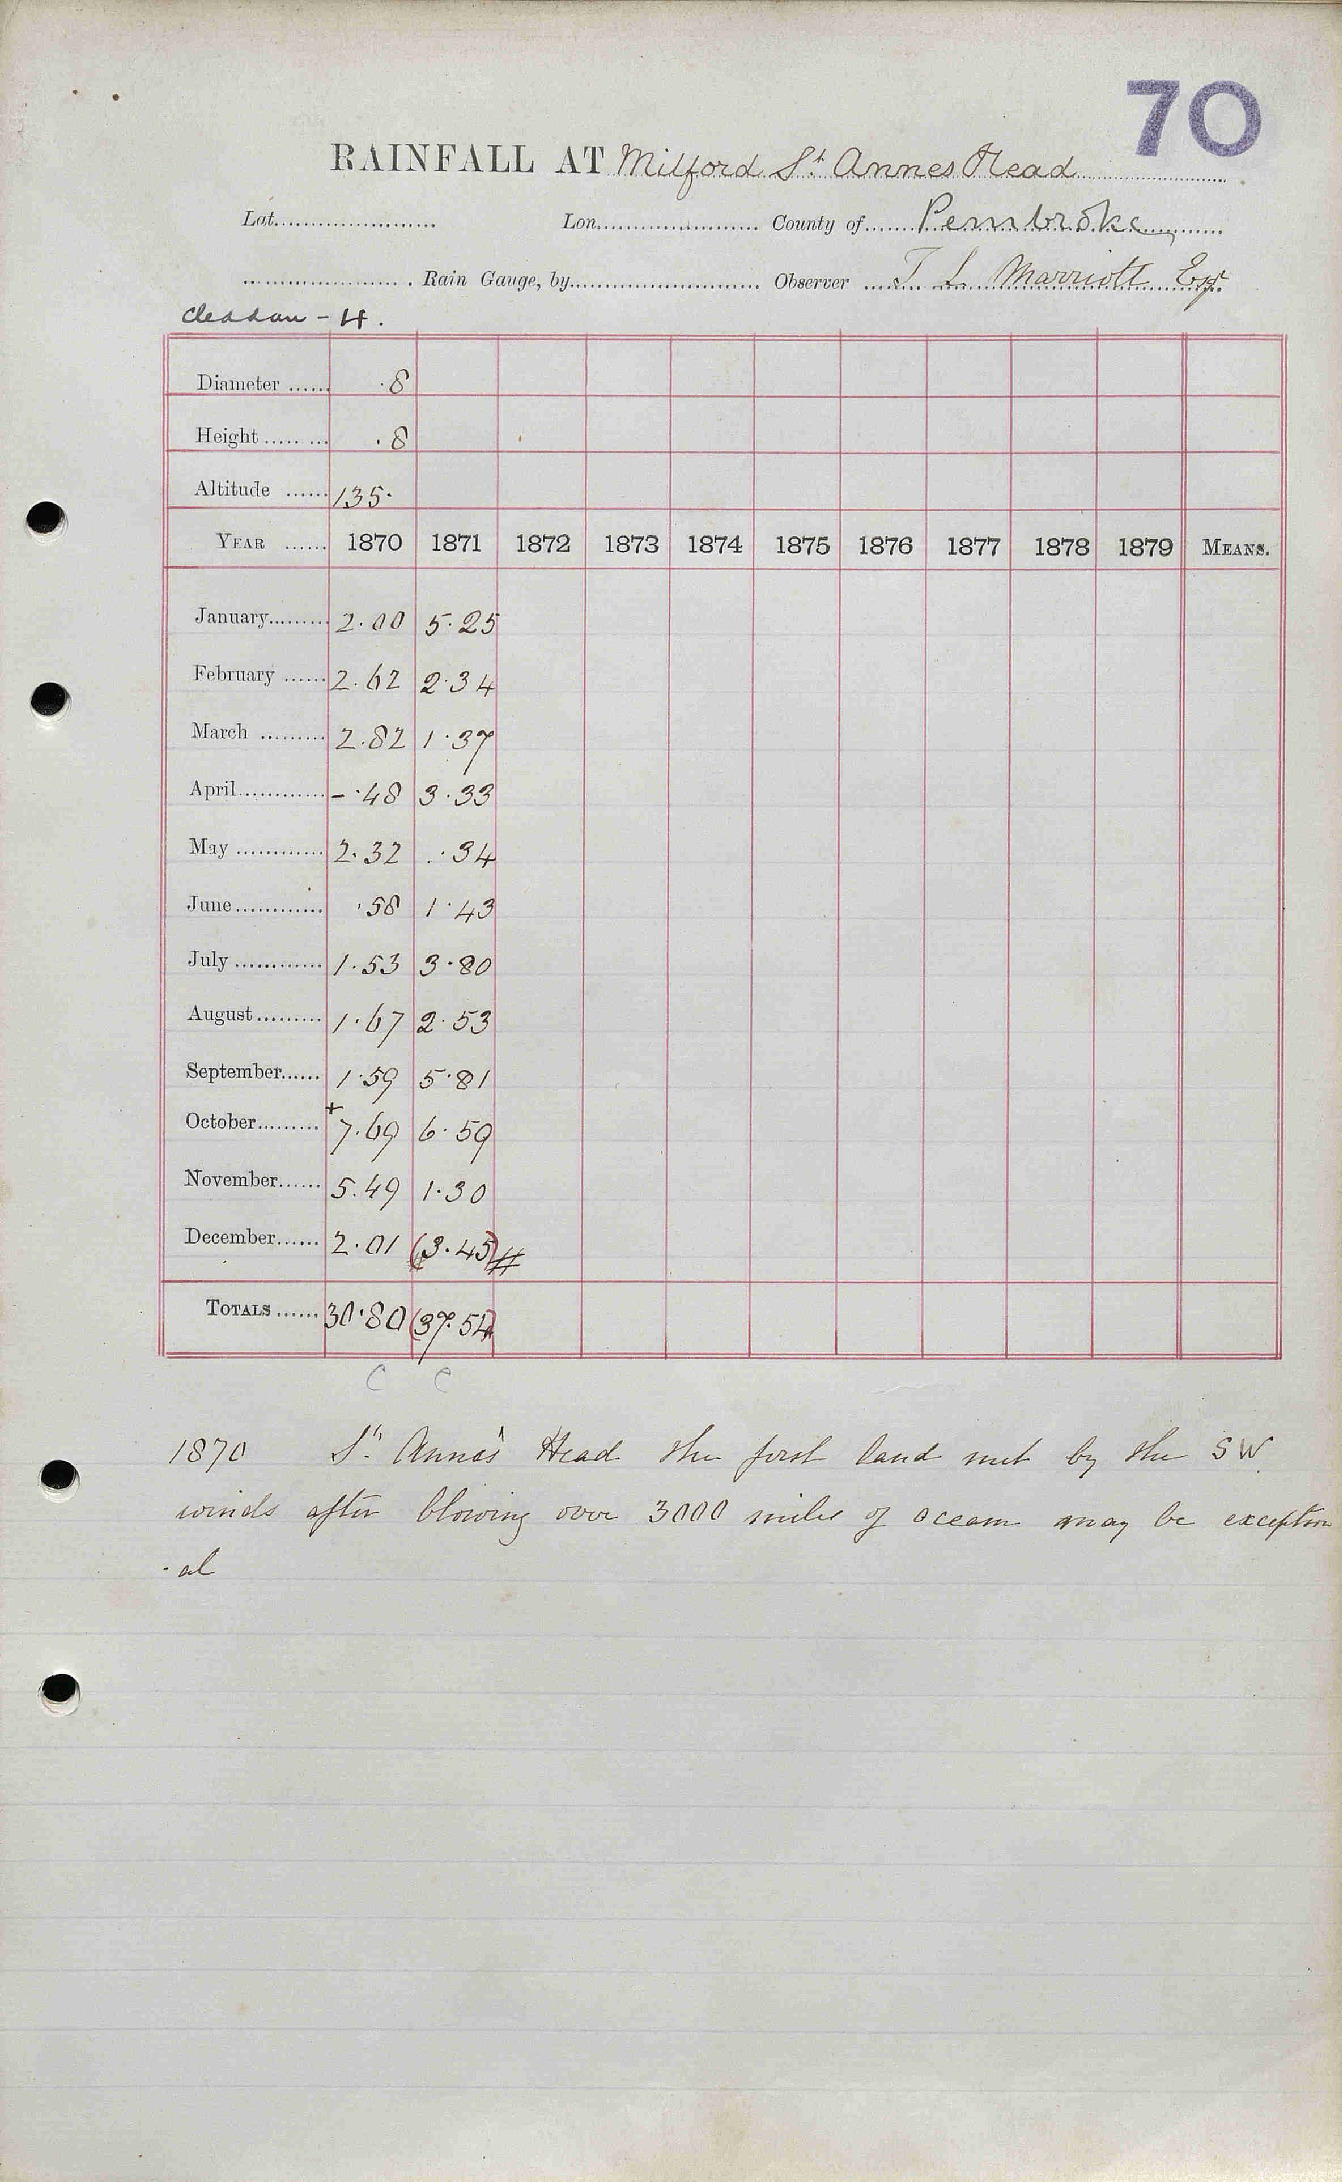 70
RAINFALL AT Milford St Annes Head
Lat. Lon. County of Pembroke
Rain Gauge, by Observer T L Marriott Esqr.
Cleddau - H.
Diameter .8
Height .8
Altitude 135.
YEAR 1870 1871 1872 1873 1874 1875 1876 1877 1878 1879 MEANS.
January 2.00 5.25
February 2.62 2.34
March 2.82 1.37
April - .48 3.33
May 2.32 .34
June .58 1.43
July 1.53 3.80
August 1.67 2.53
September 1.59 5.81
October +7.69 6.59
November 5.49 1.30
December 2.01 (3.45)#
TOTALS 30.80 (37.54)
C C
1870 St. Anne's Head the first land met by the SW
winds after blowing over 3000 miles of ocean may be exception
-al